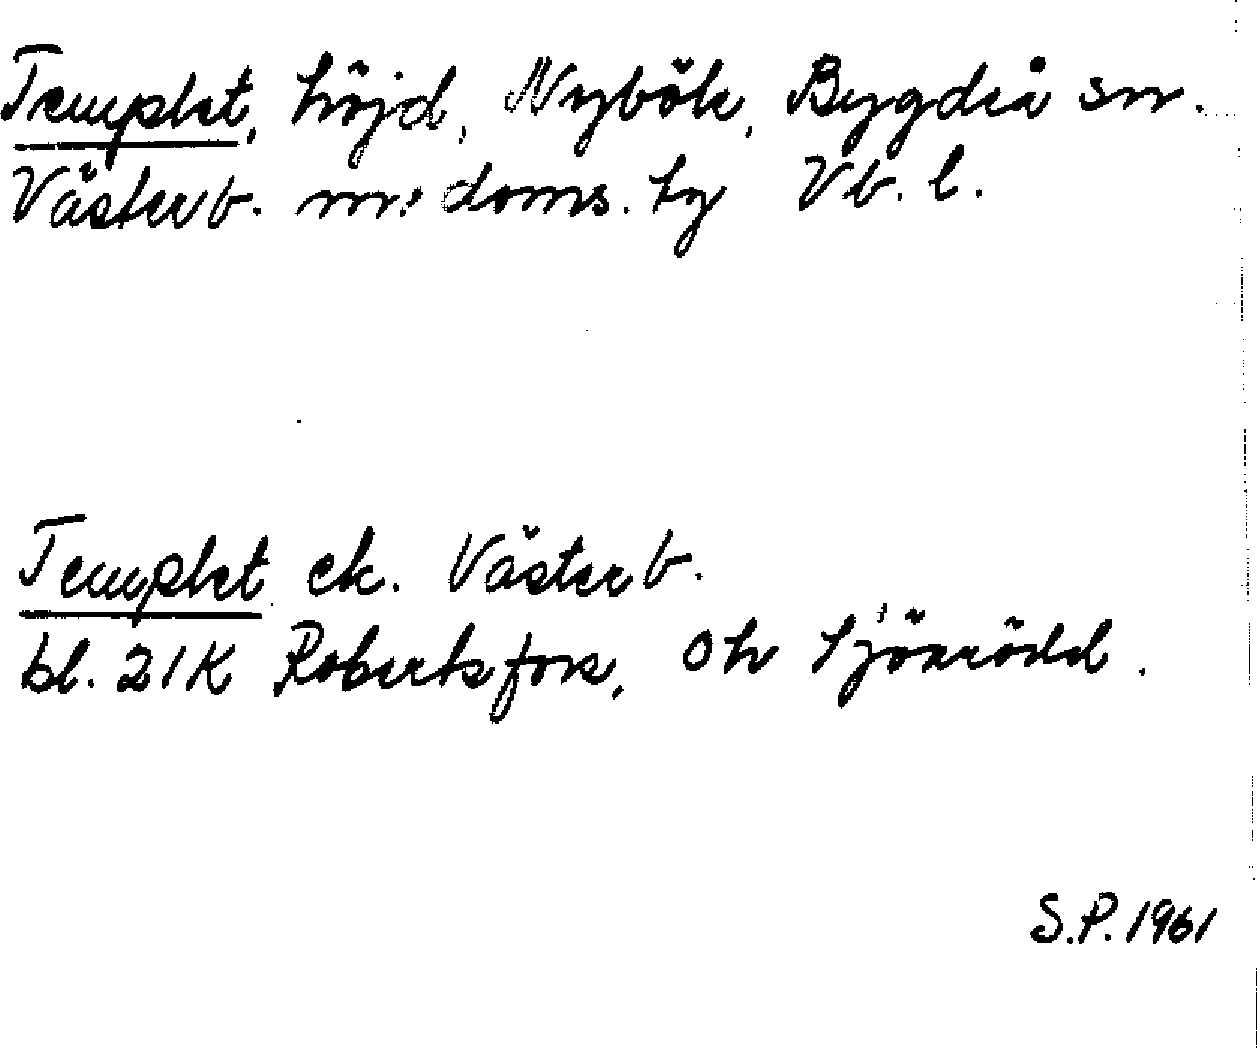 Templet, höjd, Nybök, Bygdeå sn.
Västerb. m: doms. tg Vb. l.
Templet ek. Västerb.
bl. 21K Robertsfors, oh
S.P. 1961